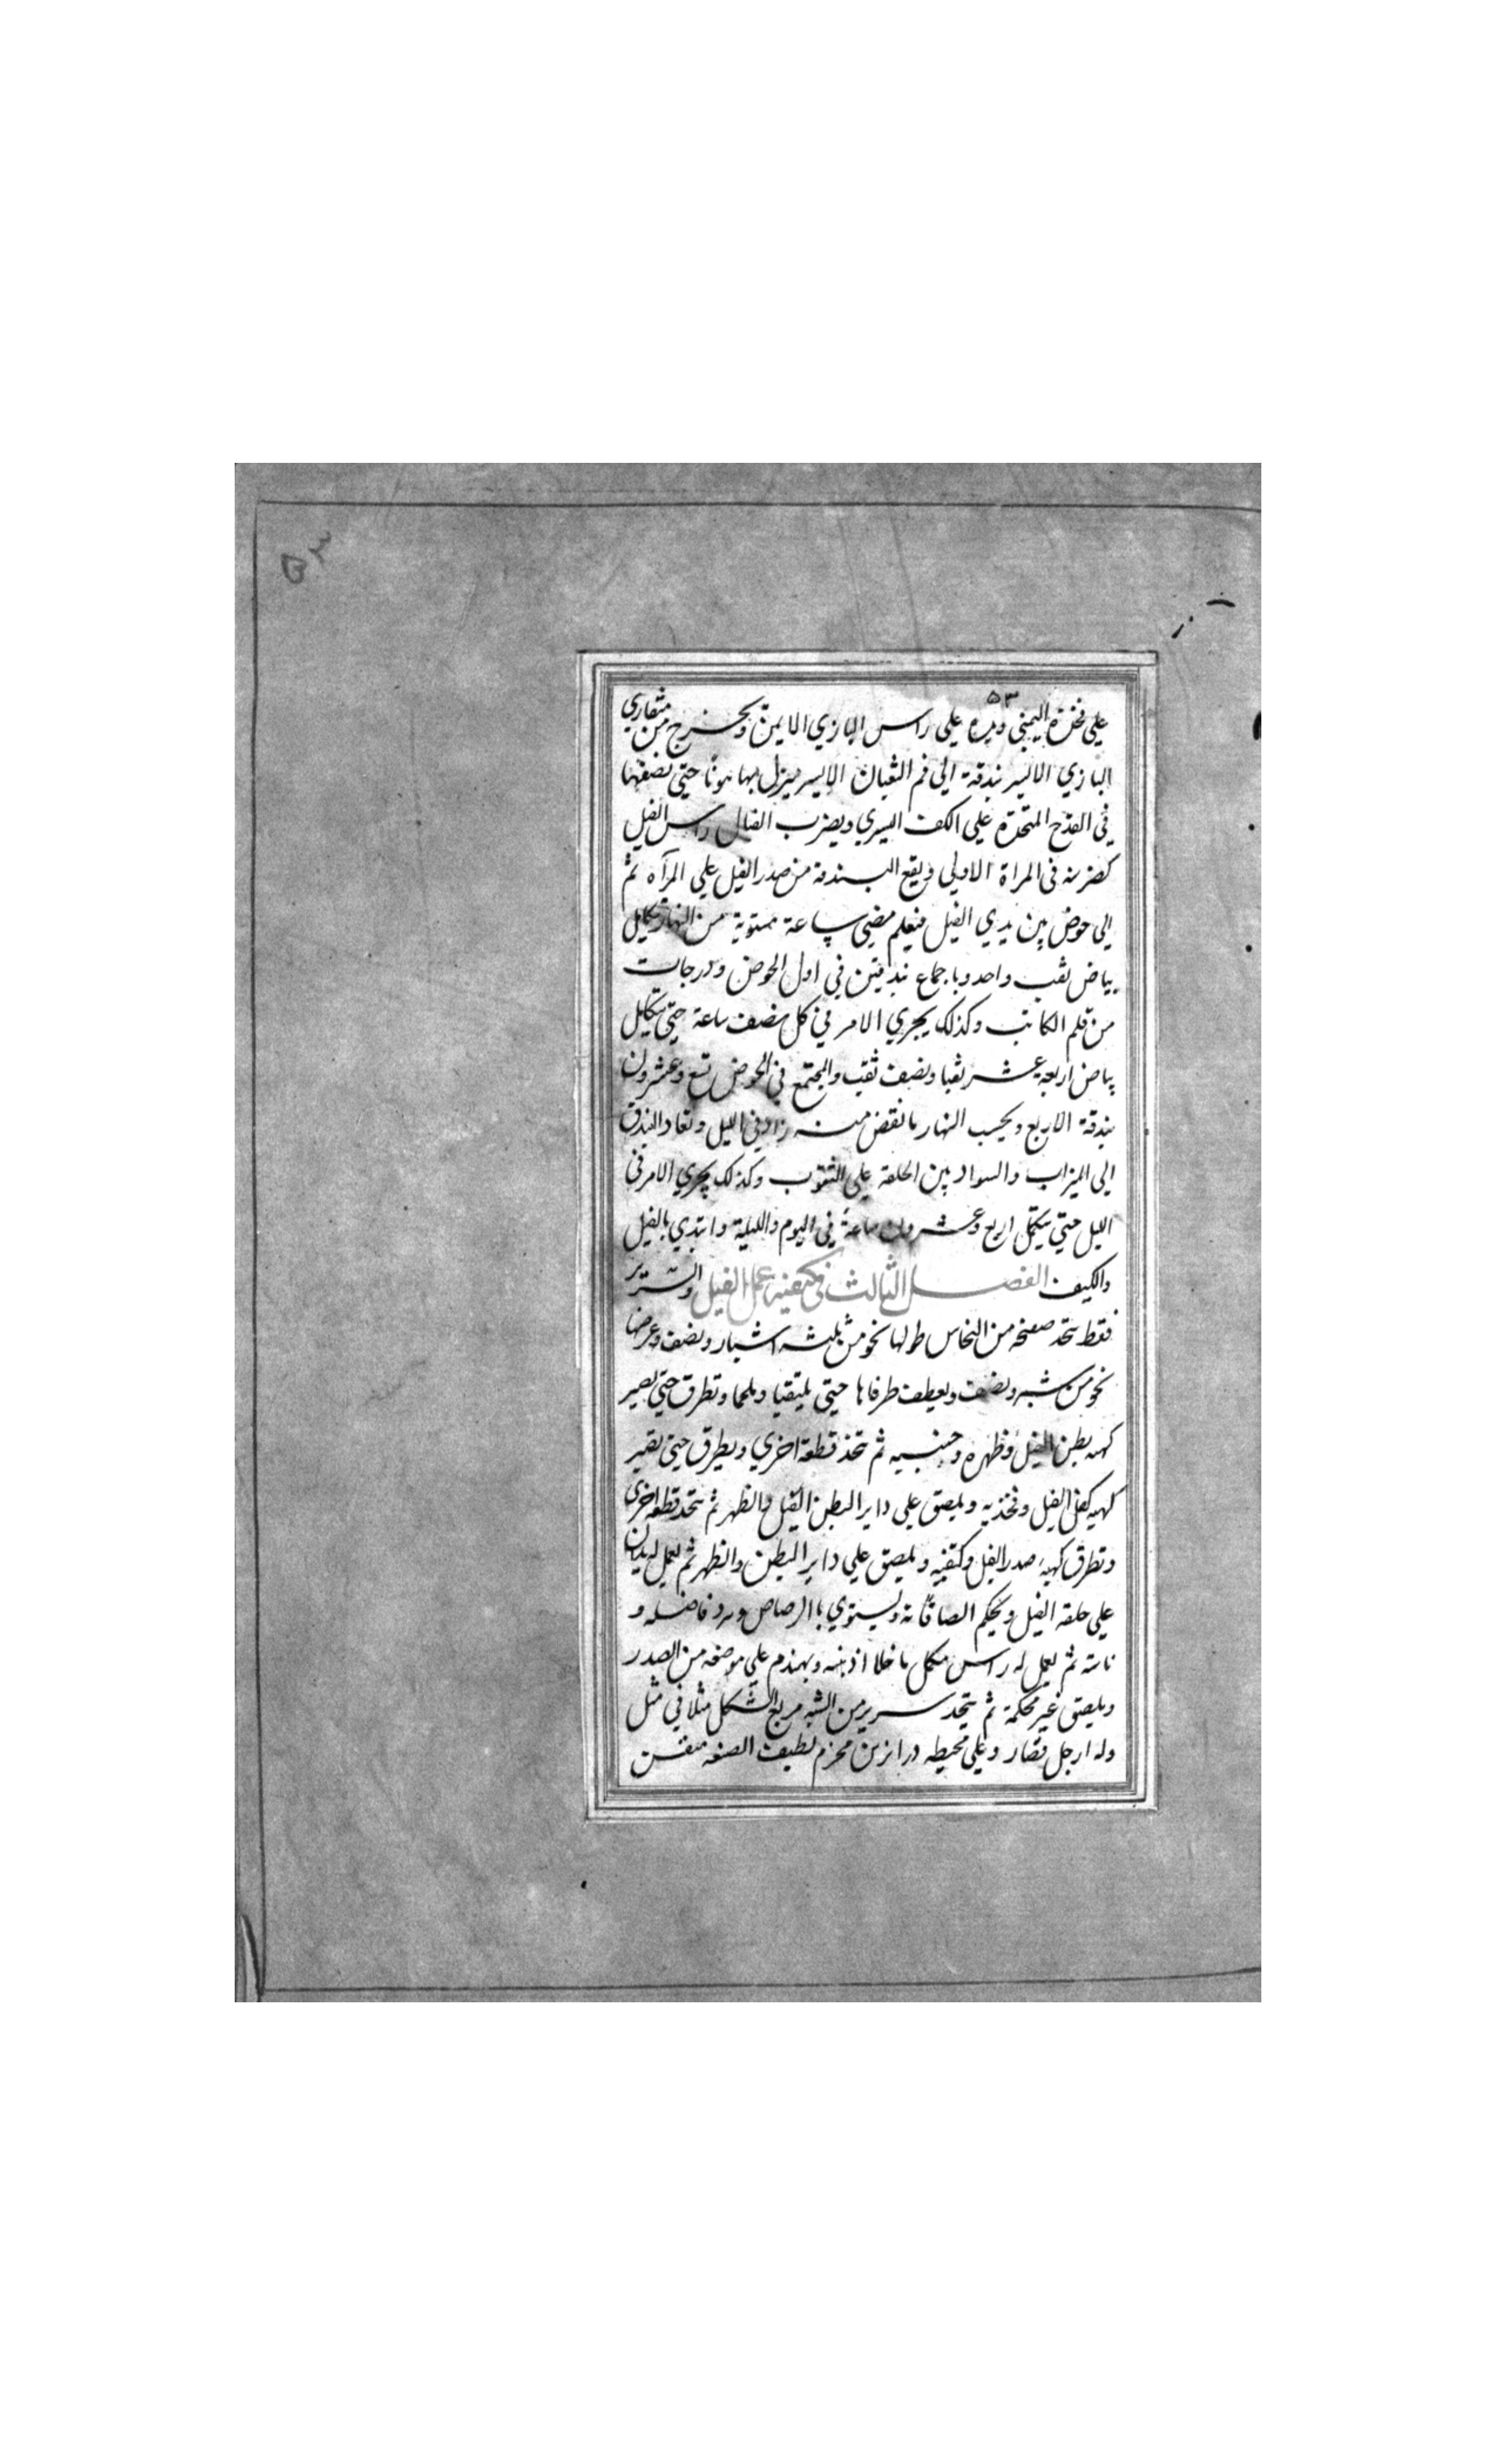 ٥٣
٥٣
علي فخذه اليمني ويده علي راس البازي الايمن ويخرج من منقاري
البازي الايسر بندقة الي فم الثعبان الايسر ينزل بها هونا حتي يضعها
في القدح المتخذة علي الكف اليسري ويضرب الفيال راس الفيل
كضربه في المراة الاولي ويقع البندقة من صدر الفيل علي المرآه ثم
الي حوض بين يدي الفيل فيعلم مضي ساعة مستوية من النهار بتكامل
بياض ثقب واحد وباجماع بندقتين في اول الحوض ودرجات
من قلم الكاتب وكذلك يجري الامر في كل نصف ساعة حتي يتكامل
بياض اربعة عشر ثقبا ونصف ثقب والمجتمع في الحوض تسع وعشرون
بندقة الاربع ويحسب النهار ما نقص منه زاد في الليل وتعاد البندق
الي الميزاب والسواد بين الحلقة علي الثقوب وكذلك يجري الامر في
الليل حتي يتكمل اربع وعشرون ساعة في اليوم والليلة وابتدي بالفيل
والكيف الفصل الثالث في كيفية عمل الفيل والسرير
فقط يتخذ صفحة من النحاس طولها نحو من ثلثه اشبار ونصف وعرضها
نحو من شبر ونصف ويعطف طرفاها حتي يلتقيا ويلحما وتطرق حتي يصير
كهيه بطن الفيل وظهره وجنبيه ثم تتخذ قطعة اخري ويطرق حتي تصير
كهيه كفل الفيل وفخذيه ويلصق علي داير البطن الفيل والظهر ثم يتخذ قطعه اخري
وتطرق كهيه صدر الفيل وكتفيه ويلصق علي داير البطن والظهر ثم يعمل له يدان
علي حلقه الفيل ويحكم الصاقاته ويستوي باالرصاص ويرد فاضله و
ثم يعمل له راس مكمل ما خلا اذنيه ويهندم علي موضعه من الصدر
ويلصق غير محكمة ثم يتخذ سرير من الشبه مربع الشكل مثلا في مثل
وله ارجل قصار وعلي محيطه درابزين مخرم لطيف الصنعه